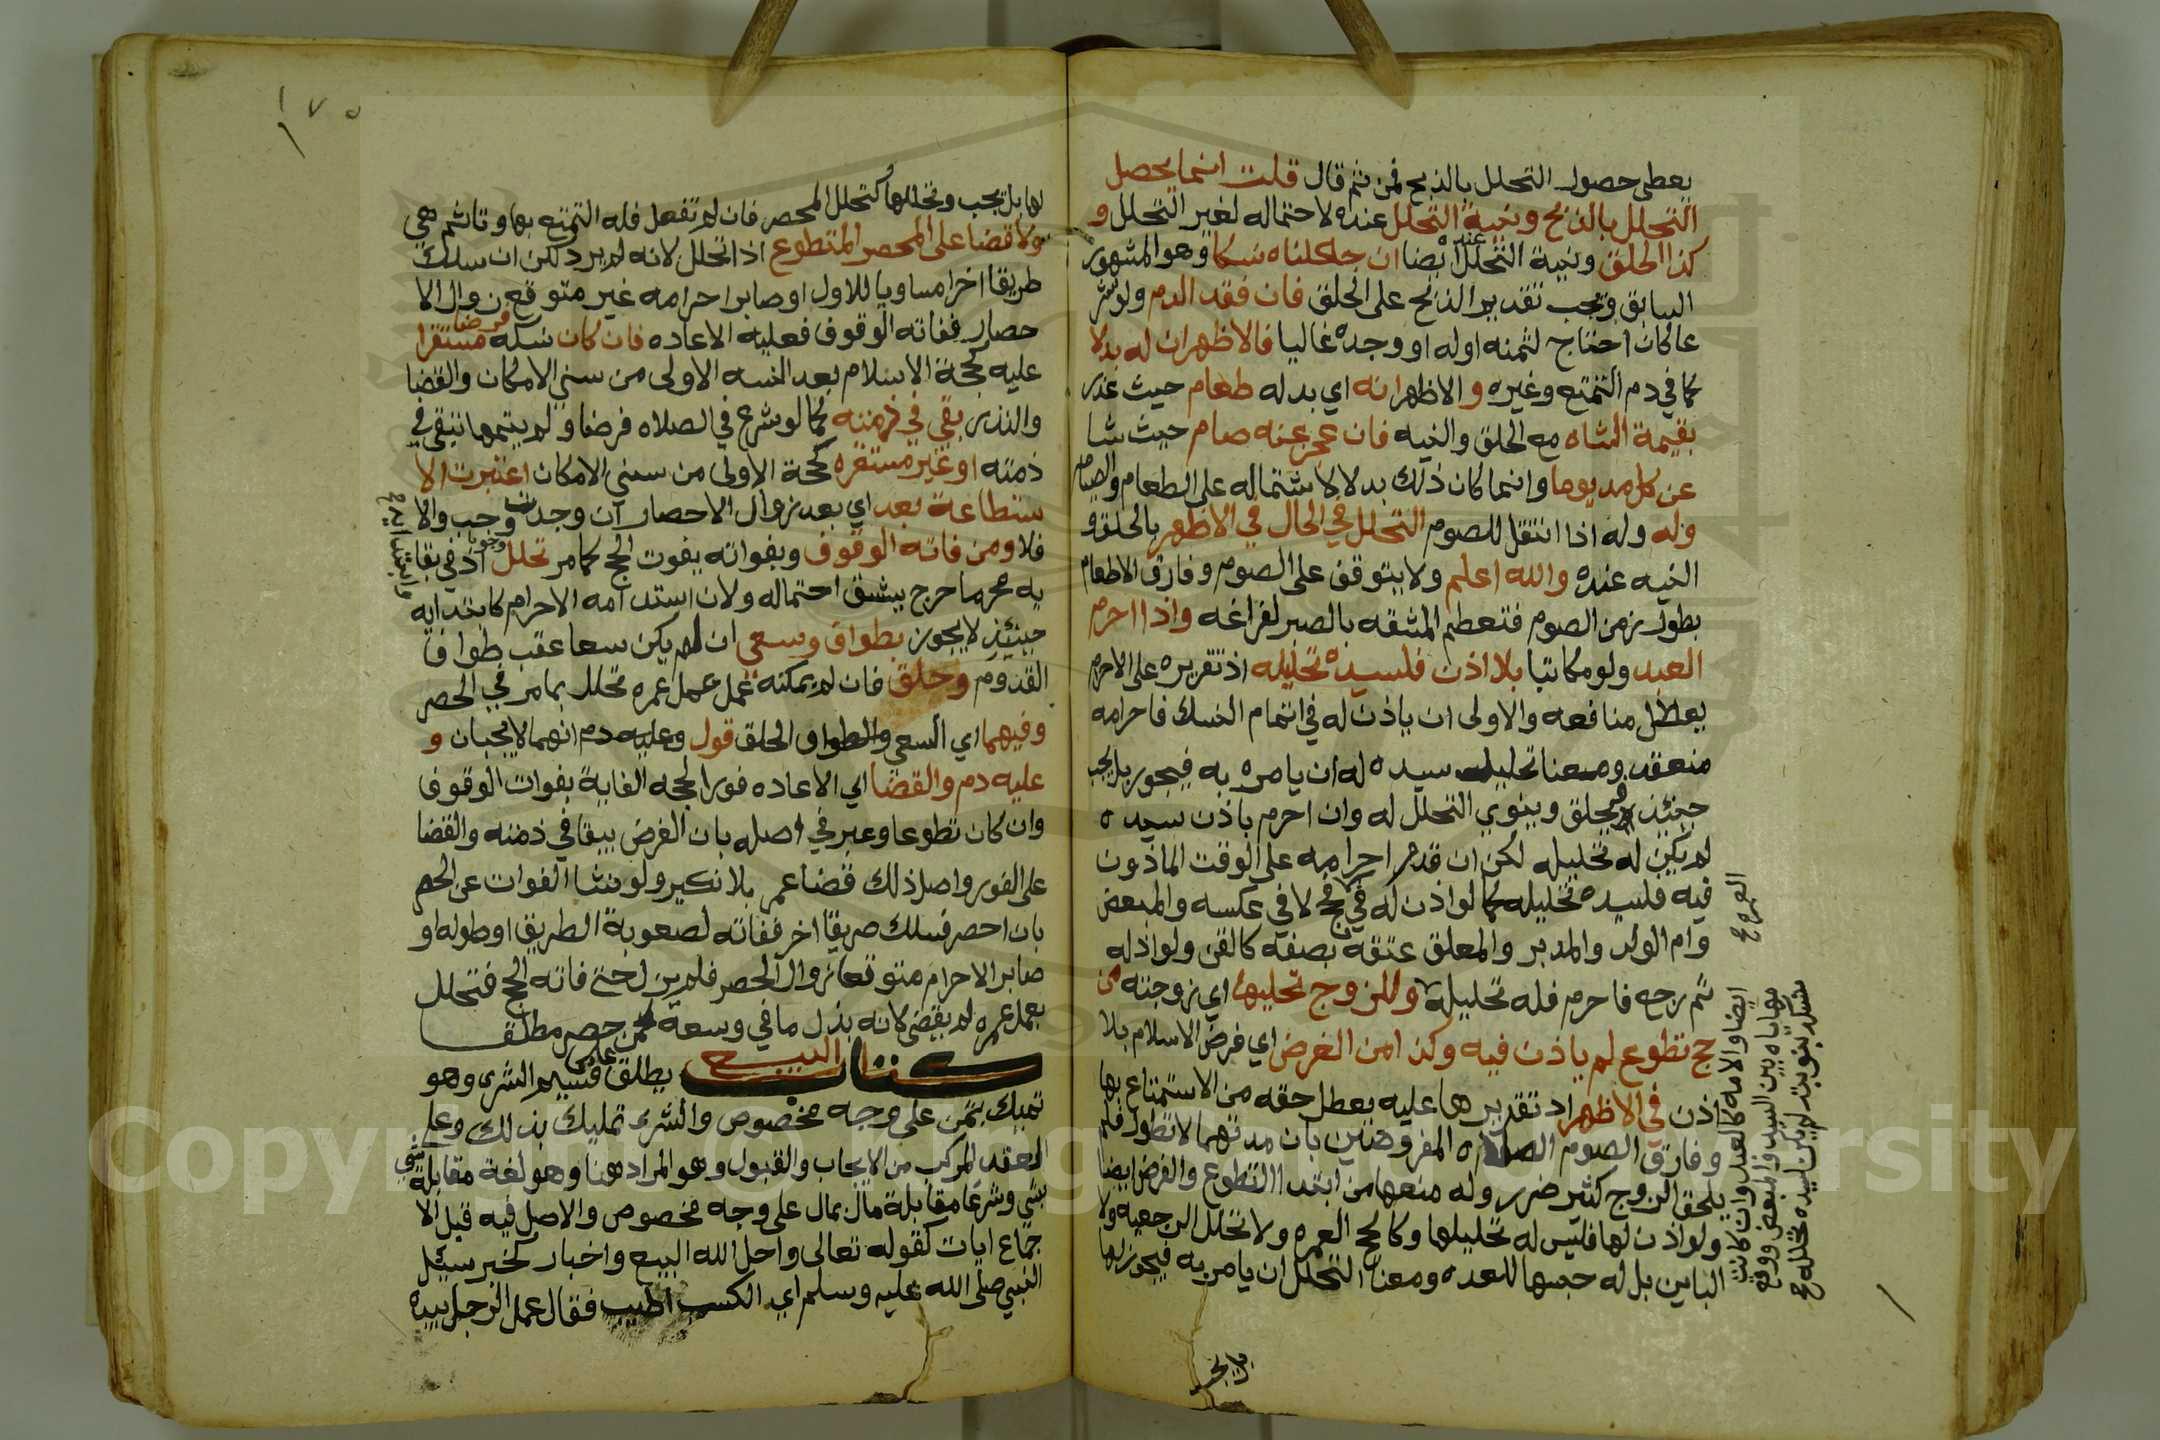 يعطي حصول التحلل بالذبح فمن ثم قال قلت انما يحصل
التحلل بالذبح ونية التحلل عنده لاحتماله لغير التحلل و
كذا الحلق ونية التحلل عنده ايضا ان جعلناه نسكا وهو المشهور
السابق ويجب تقديم الذبح على الحلق فان فقد الدم ولو شر
عا كان احتاج لثمنه اوله او وجده غاليا فالاظهر ان له بدلا
كما في دم التمتع وغيره و الاظهر انه اي بدله طعام حيث عذر
بقيمة الشاه مع الحلق والنيه فان عجز عنه صام حيث شا
عن كل مد يوما وانما كان ذلك بدلا لاشتماله على الطعام والصيام
وله وله اذا انتقل للصوم التحلل في الحال في الاظهر بالحلق و
النيه عنده والله اعلم ولا يتوقف على الصوم وفارق الاطعام
بطول زمن الصوم فتعظم المشقه بالصبر لفراغه واذا احرم
العبد ولو مكاتبا بلا اذن فلسيده تحليله اذ تقريره على الاحرام
يعطل منافعه والاولى ان ياذن له في اتمام النسك فاحرامه
منعقد ومعنا تحليله سيده له ان يامره به فيجوز بل يجب
حينئذ فيحلق وينوي التحلل له وان احرم باذن سيده
لم يكن له تحليله لكن ان قدم احرامه على الوقت الماذون
فيه فلسيده تحليله كما لو اذن له في حج لا في عكسه والمبعض
وام الولد والمدبر والمعلق عتقه بصفه كالقن ولو اذن له
ثم رجع فاحرم فله تحليله وللزوج تحليلها اي زوجته من
حج تطوع لم ياذن فيه وكذا من الفرض اي فرض الاسلام بلا
اذن في الاظهر اذ تقديرها عليه يعطل حقه من الاستمتاع بها
وفارق الصوم الصلاه المفروضتين بان مدتهما لا تطول فلم
يلحق الزوج كثير ضرر وله منعها من ابتدا التطوع والفرض ايضا
ولو اذن لها فليس له تحليلها وكالحج العمره ولا تحلل الرجعيه ولا
الباين بل له حبسها للعده ومعنا التحلل ان يامر به فيجوز لها
ايضا والامه كالعبد وان كانت
لها بل يجب وتحللها كتحلل المحصر فان لم تفعل فله التمتع بها وتاثم هي
ولا قضا على المحصر المتطوع اذا تحلل لانه لم يرد لكن ان سلك
طريقا اخر مساويا للاول او صابر احرامه غير متوقع زوال الا
حصار ففاته الوقوف فعليه الاعاده فان كان نسكه فرضا مستقرا
عليه كحجة الاسلام بعد السنه الاولى من سني الامكان والقضا
والنذر بقي في ذمته كما لو شرع في الصلاه فرضا ولم يتمها تبقى في
ذمته او غير مستقره كحجة الاولى من سني الامكان اعتبرت الا
ستطاعة بعد اي بعد زوال الاحصار ان وجدت وجب والا
فلا ومن فاته الوقوف وبفواته يفوت الحج كما مر تحلل وجوبا اذ في بقا
يه محرما حرج يشق احتماله ولان استدامه الاحرام كابتدايه
حينئذ لا يجوز بطواف وسعي ان لم يكن سعا عقب طواف
القدوم وحلق فان لم يمكنه عمل عمل عمره تحلل بما مر في الحصر
وفيهما اي السعي والطواف والحلق قول وعليه دم انهما لا يجبان و
عليه دم والقضا اي الاعاده فورا لحجه الفاية بفوات الوقوف
وان كان تطوعا وعبر في اصله بان الفرض يبقا في ذمته والقضا
على الفور واصل ذلك قضا عمر بلا نكير ولو نشا الفوات عن الحصر
بان احصر فسلك طريقا اخر ففاته لصعوبة الطريق او طوله او
صابر الاحرام متوقعا زوال الحصر فلم يزل حتى فاته الحج فتحلل
بعمل عمره لم يقض لانه بذل ما في وسعه كمن حصر مطلقا
كتاب البيع يطلق على قسيم الشرى وهو
تمليك بثمن على وجه مخصوص والشرى تمليك بذلك وعلى
العقد المركب من الايجاب والقبول وهو المراد هنا وهو لغة مقابلة شي
بشي وشرعا مقابلة مال بمال على وجه مخصوص والاصل فيه قبل الا
جماع ايات كقوله تعالى واحل الله البيع واخبار كخبر سيئل
النبي صلى الله عليه وسلم اي الكسب اطيب فقال عمل الرجل بيده
١٧٥
Copyright © King Saud University